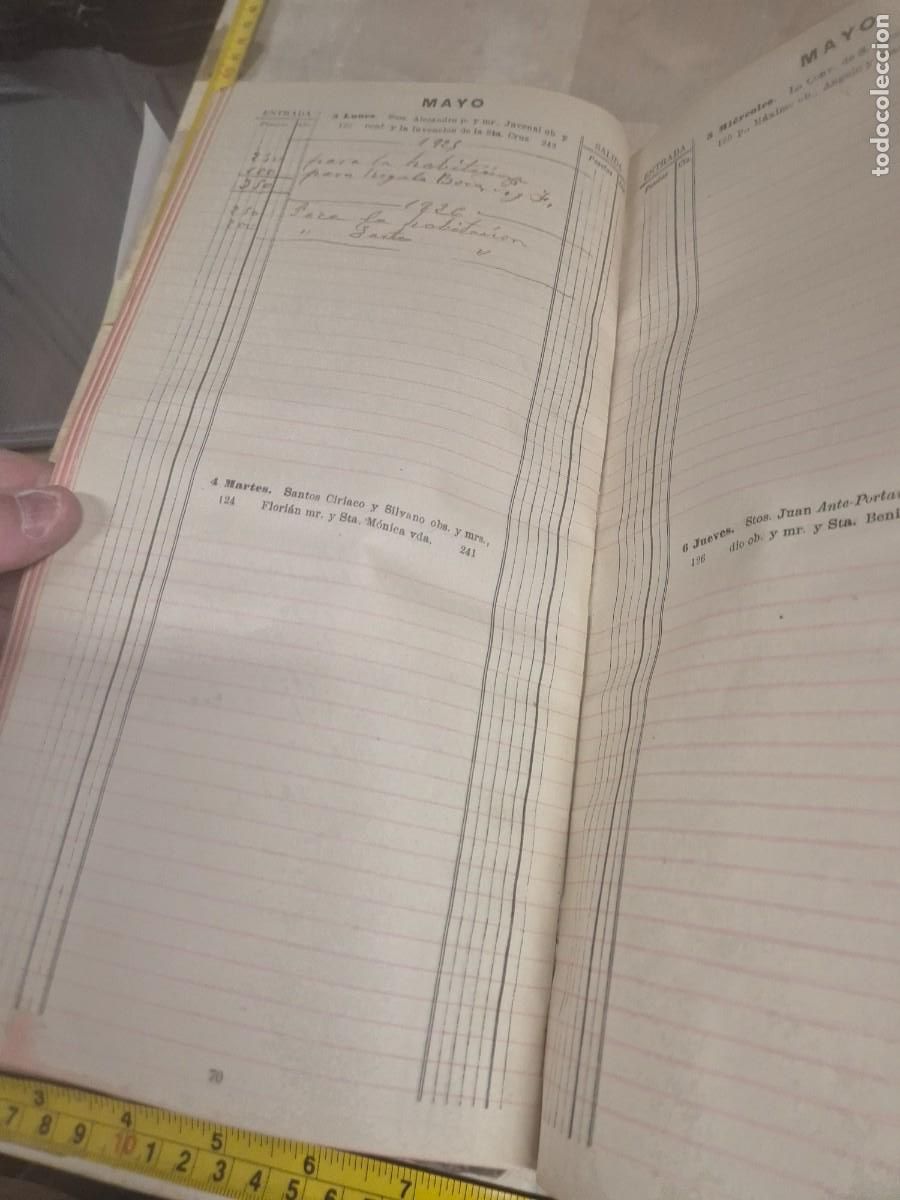 MAYO
ENTRADA
Pesetas Cts.
3 Lunes. Stos. Alejandro p. y mr. Juvenal ob. y
conf. y la Invención de la Sta. Cruz 242
SALIDA
Pesetas
1925
250 para la habitación
100 para
350
1926
250 Para la habitación
" "
4 Martes. Santos Ciriaco y Silvano obs. y mrs.,
124 Florián mr. y Sta. Mónica vda. 241
70
MAYO
ENTRADA
Pesetas Cts.
5 Miércoles. La Conv. de S.
125 Máximo ob., Angelo
6 Jueves. Stos. Juan Ante-Porta
126 dio ob. y mr. y Sta. Beni
todocoleccion
3 4 5 6 7
7 8 9 10 1 2 3 4 5 6